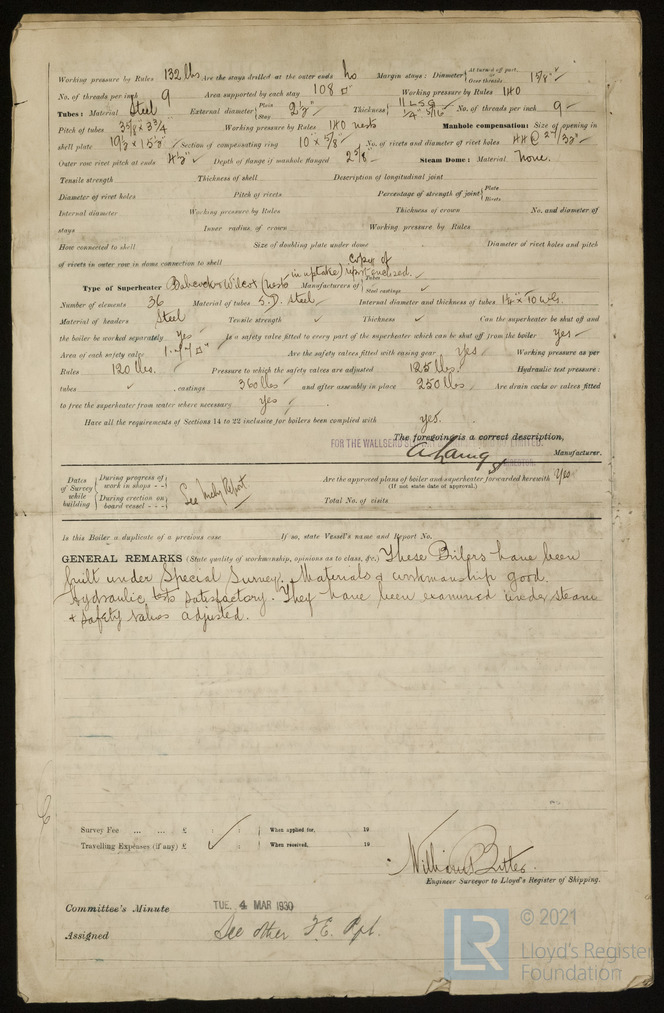 Working pressure by Rules 132 lbs Are the stays drilled at the outer ends No Margin stays: Diameter { At turned off part, or Over threads 1 5/8" ✓
No. of threads per inch 9 Area supported by each stay 108 □" Working pressure by Rules 140
Tubes: Material Steel External diameter { Plain Stay 2 1/2" ✓ Thickness { 11 LSG 1/4" 5/16" ✓ No. of threads per inch 9 ✓
Pitch of tubes 3 5/8" × 3 3/4 Working pressure by Rules 140 Manhole compensation: Size of opening in
shell plate 19 1/2 × 15 1/2" ✓ Section of compensating ring 10 × 5/8" ✓ No. of rivets and diameter of rivet holes 44 @ 27/32" ✓
Outer row rivet pitch at ends 4 1/2" ✓ Depth of flange if manhole flanged 2 5/8" Steam Dome: Material None.
Tensile strength Thickness of shell Description of longitudinal joint
Diameter of rivet holes Pitch of rivets Percentage of strength of joint { Plate Rivets
Internal diameter Working pressure by Rules Thickness of crown No. and diameter of
stays Inner radius of crown Working pressure by Rules
How connected to shell Size of doubling plate under dome Diameter of rivet holes and pitch
of rivets in outer row in dome connection to shell
Type of Superheater Babcock & Wilcox (nests in uptake) Manufacturers of { Tubes Steel castings copy of rpt enclosed. ✓
Number of elements 36 Material of tubes S.D. Steel ✓ Internal diameter and thickness of tubes
Material of headers Steel Tensile strength ✓ Thickness ✓ Can the superheater be shut off and
the boiler be worked separately yes ✓ Is a safety valve fitted to every part of the superheater which can be shut off from the boiler yes ✓
Area of each safety valve Are the safety valves fitted with easing gear yes ✓ Working pressure as per
Rules 120 lbs. Pressure to which the safety valves are adjusted 125 lbs. Hydraulic test pressure:
tubes ✓ , castings 360 lbs ✓ and after assembly in place 250 lbs ✓ Are drain cocks or valves fitted
to free the superheater from water where necessary yes ✓
Have all the requirements of Sections 14 to 22 inclusive for boilers been complied with yes.
FOR THE WALLSEND LIMITED.
The foregoing is a correct description,
Manufacturer.
Dates of Survey while building { During progress of work in shops - - During erection on board vessel - - - See Mchy Report
Are the approved plans of boiler and superheater forwarded herewith Yes
(If not state date of approval.)
Total No. of visits
Is this Boiler a duplicate of a previous case If so, state Vessel's name and Report No.
GENERAL REMARKS (State quality of workmanship, opinions as to class, &c.) These Boilers have been
built under Special Survey. Materials & workmanship good.
Hydraulic tests satisfactory. They have been examined under steam
& safety valves adjusted.
Survey Fee ... ... £ : : When applied for, 19
Travelling Expenses (if any) £ : : When received, 19
William Butler.
Engineer Surveyor to Lloyd's Register of Shipping.
Committee's Minute TUE. 4 MAR 1930
Assigned See other F.E. Rpt.
LR © 2021
Lloyd's Register
Foundation